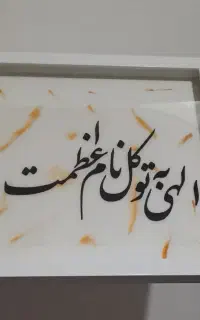 الهی به توکل نام اعظمت